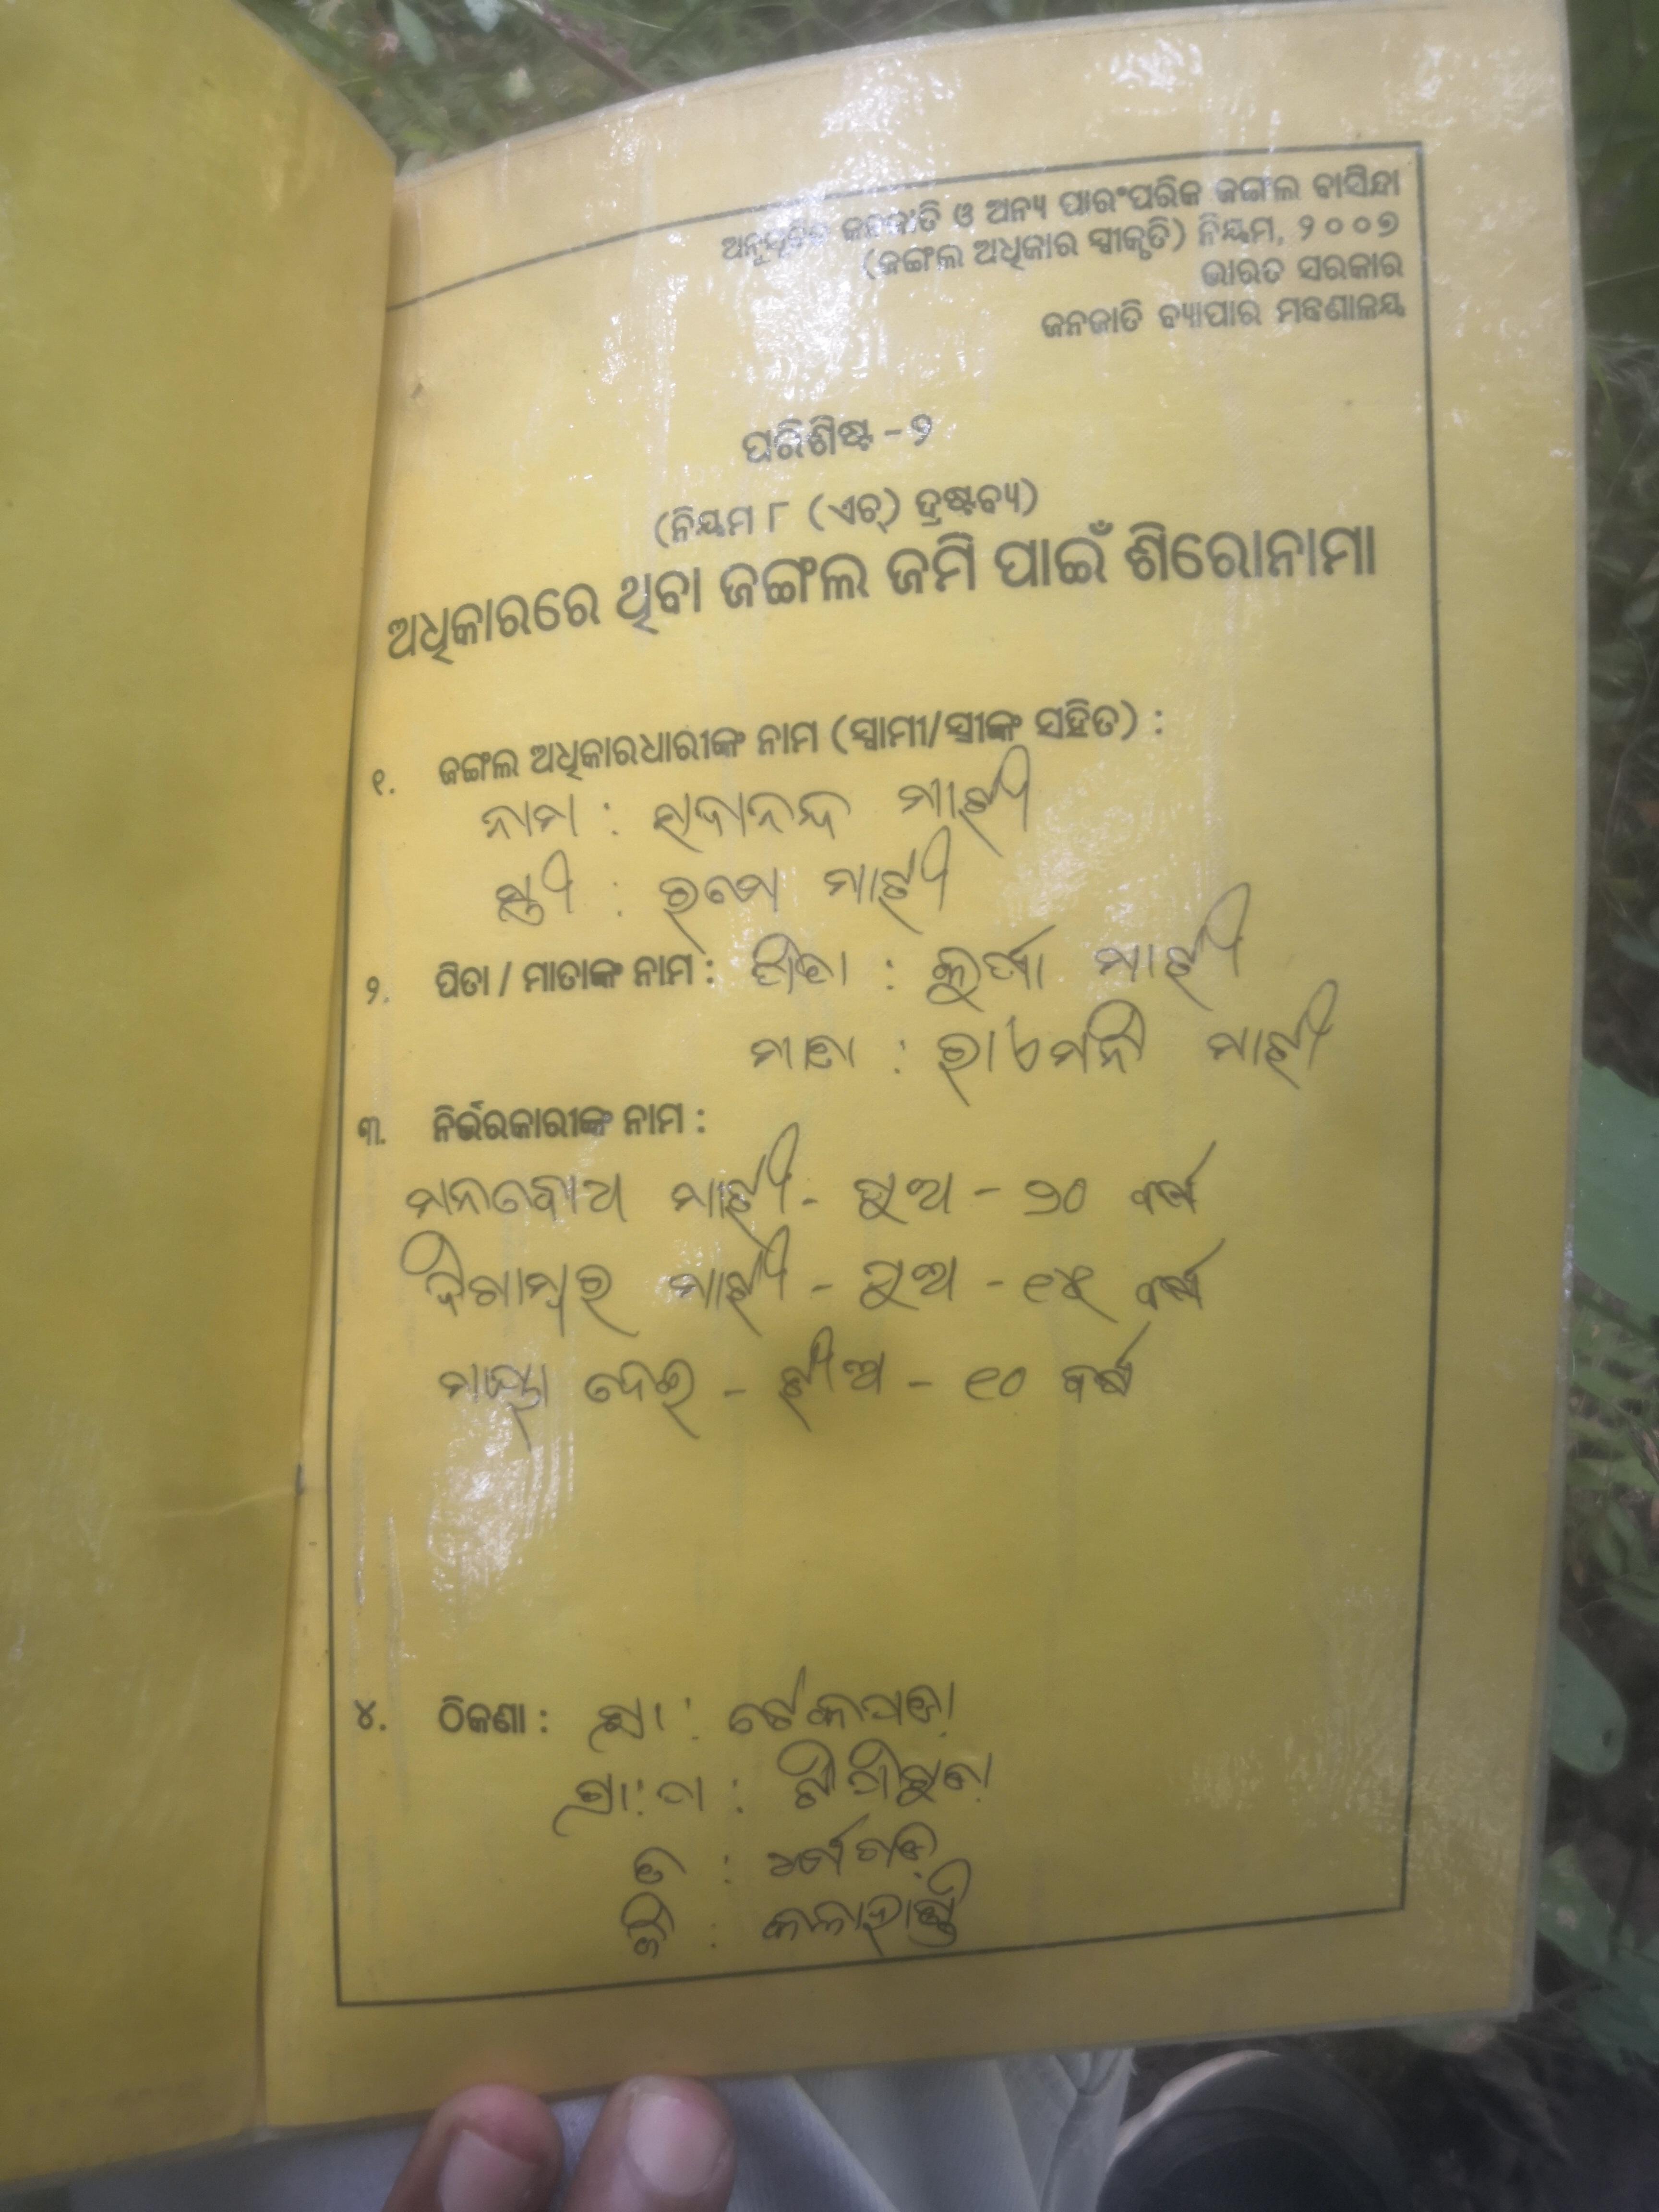 ଅନୁସୂଚିତ ଜନଜାତି ଓ ଅନ୍ୟ ପାରଂପରିକ ଜଙ୍ଗଲ ବାସିନ୍ଦା
(ଜଙ୍ଗଲ ଅଧିକାର ସ୍ୱୀକୃତି) ନିୟମ, ୨୦୦୭
ଭାରତ ସରକାର
ଜନଜାତି ବ୍ୟାପାର ମନ୍ତ୍ରଣାଳୟ
ପରିଶିଷ୍ଟ - ୨
(ନିୟମ ୮ (ଏଚ୍) ଦ୍ରଷ୍ଟବ୍ୟ)
ଅଧିକାରରେ ଥିବା ଜଙ୍ଗଲ ଜମି ପାଇଁ ଶିରୋନାମା
୧. ଜଙ୍ଗଲ ଅଧିକାରଧାରୀଙ୍କ ନାମ (ସ୍ୱାମୀ/ସ୍ତ୍ରୀଙ୍କ ସହିତ) :
ନାମ : ସଦାନନ୍ଦ ମାଝୀ
ସ୍ତ୍ରୀ : ରମେ ମାଝୀ
୨. ପିତା / ମାତାଙ୍କ ନାମ : ପିତା : ମାଝୀ
ମାତା : ରାଏମନି ମାଝୀ
୩. ନିର୍ଭରକାରୀଙ୍କ ନାମ :
ମନବୋଧ ମାଝୀ - ପୁଅ - ୨୦ ବର୍ଷ
ଦିଗାମ୍ବର ମାଝୀ - ପୁଅ - ୧୫ ବର୍ଷ
ଦେଇ - ଝୀଅ - ୧୦ ବର୍ଷ
୪. ଠିକଣା : ଗ୍ରା :
ଗ୍ରା.ପ :
ତ : ଧର୍ମଗଡ଼
ଜି : କଳାହାଣ୍ଡି